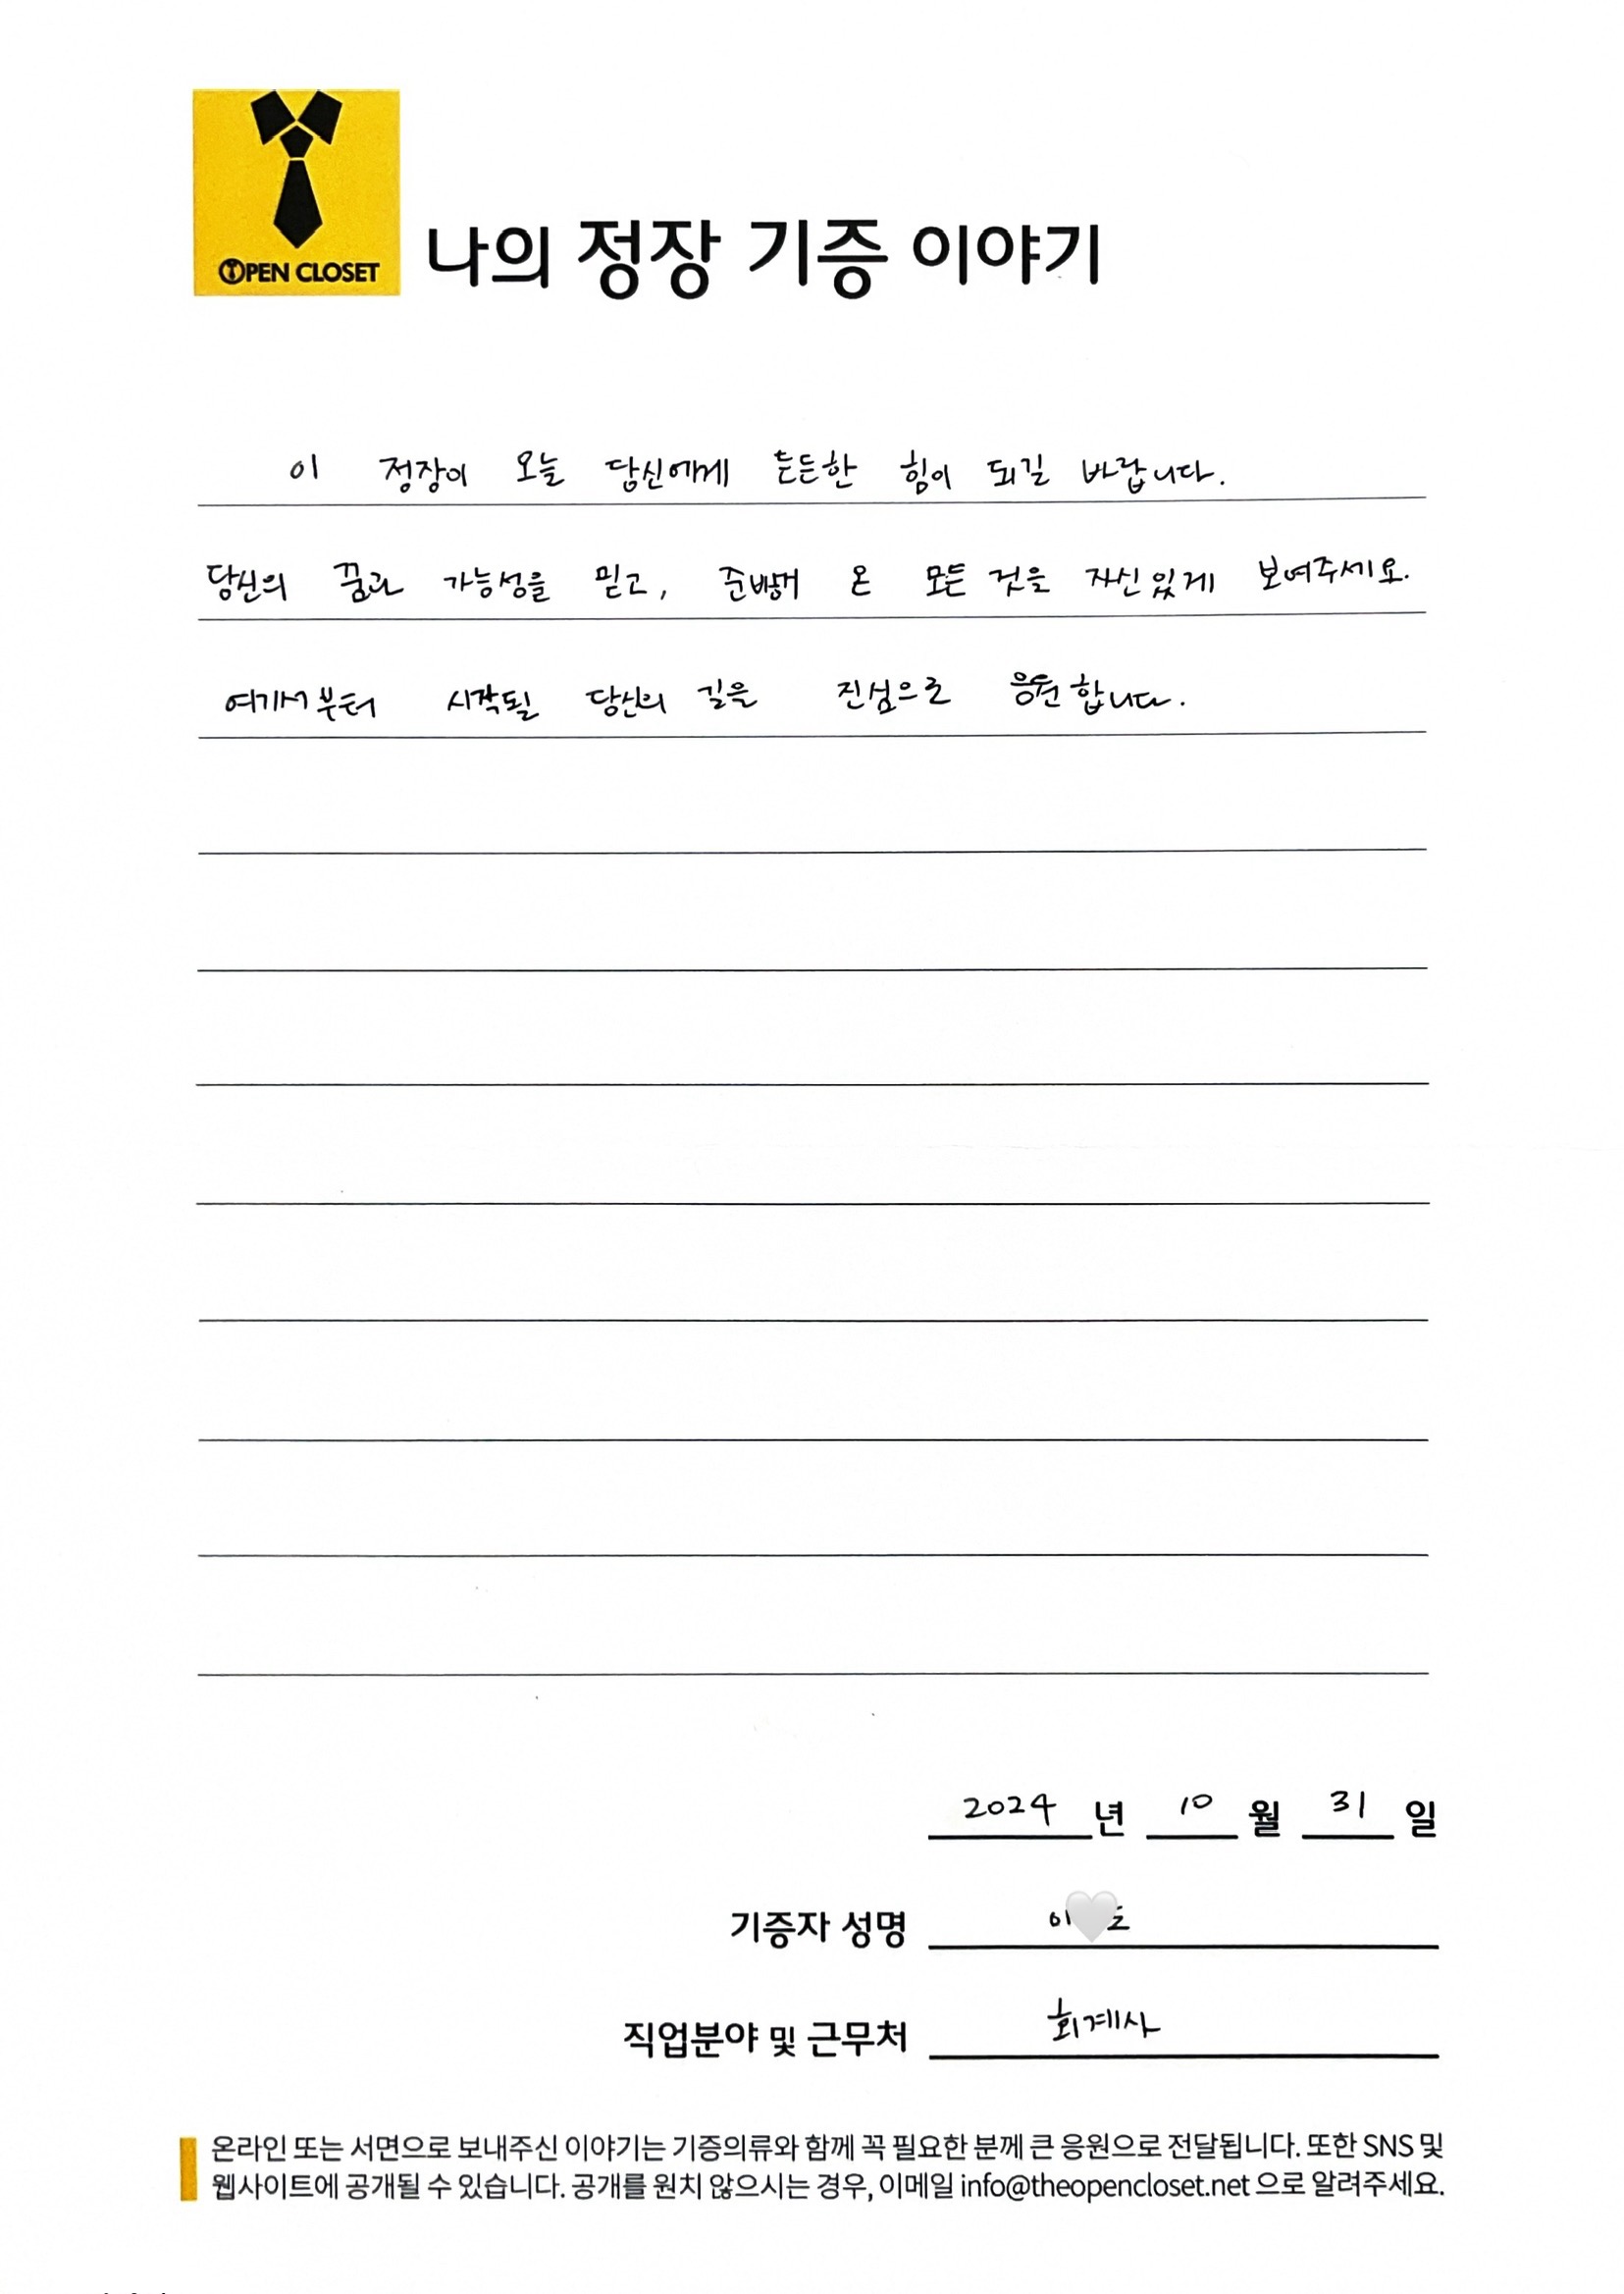 OPEN CLOSET
나의 정장 기증 이야기
이 정장이 오늘 당신에게 든든한 힘이 되길 바랍니다.
당신의 꿈과 가능성을 믿고, 준비해 온 모든 것을 자신있게 보여주세요.
여기서부터 시작될 당신의 길을 진심으로 응원합니다.
2024 년 10 월 31 일
기증자 성명 이
직업분야 및 근무처 회계사
온라인 또는 서면으로 보내주신 이야기는 기증의류와 함께 꼭 필요한 분께 큰 응원으로 전달됩니다. 또한 SNS 및
웹사이트에 공개될 수 있습니다. 공개를 원치 않으시는 경우, 이메일 info@theopencloset.net 으로 알려주세요.